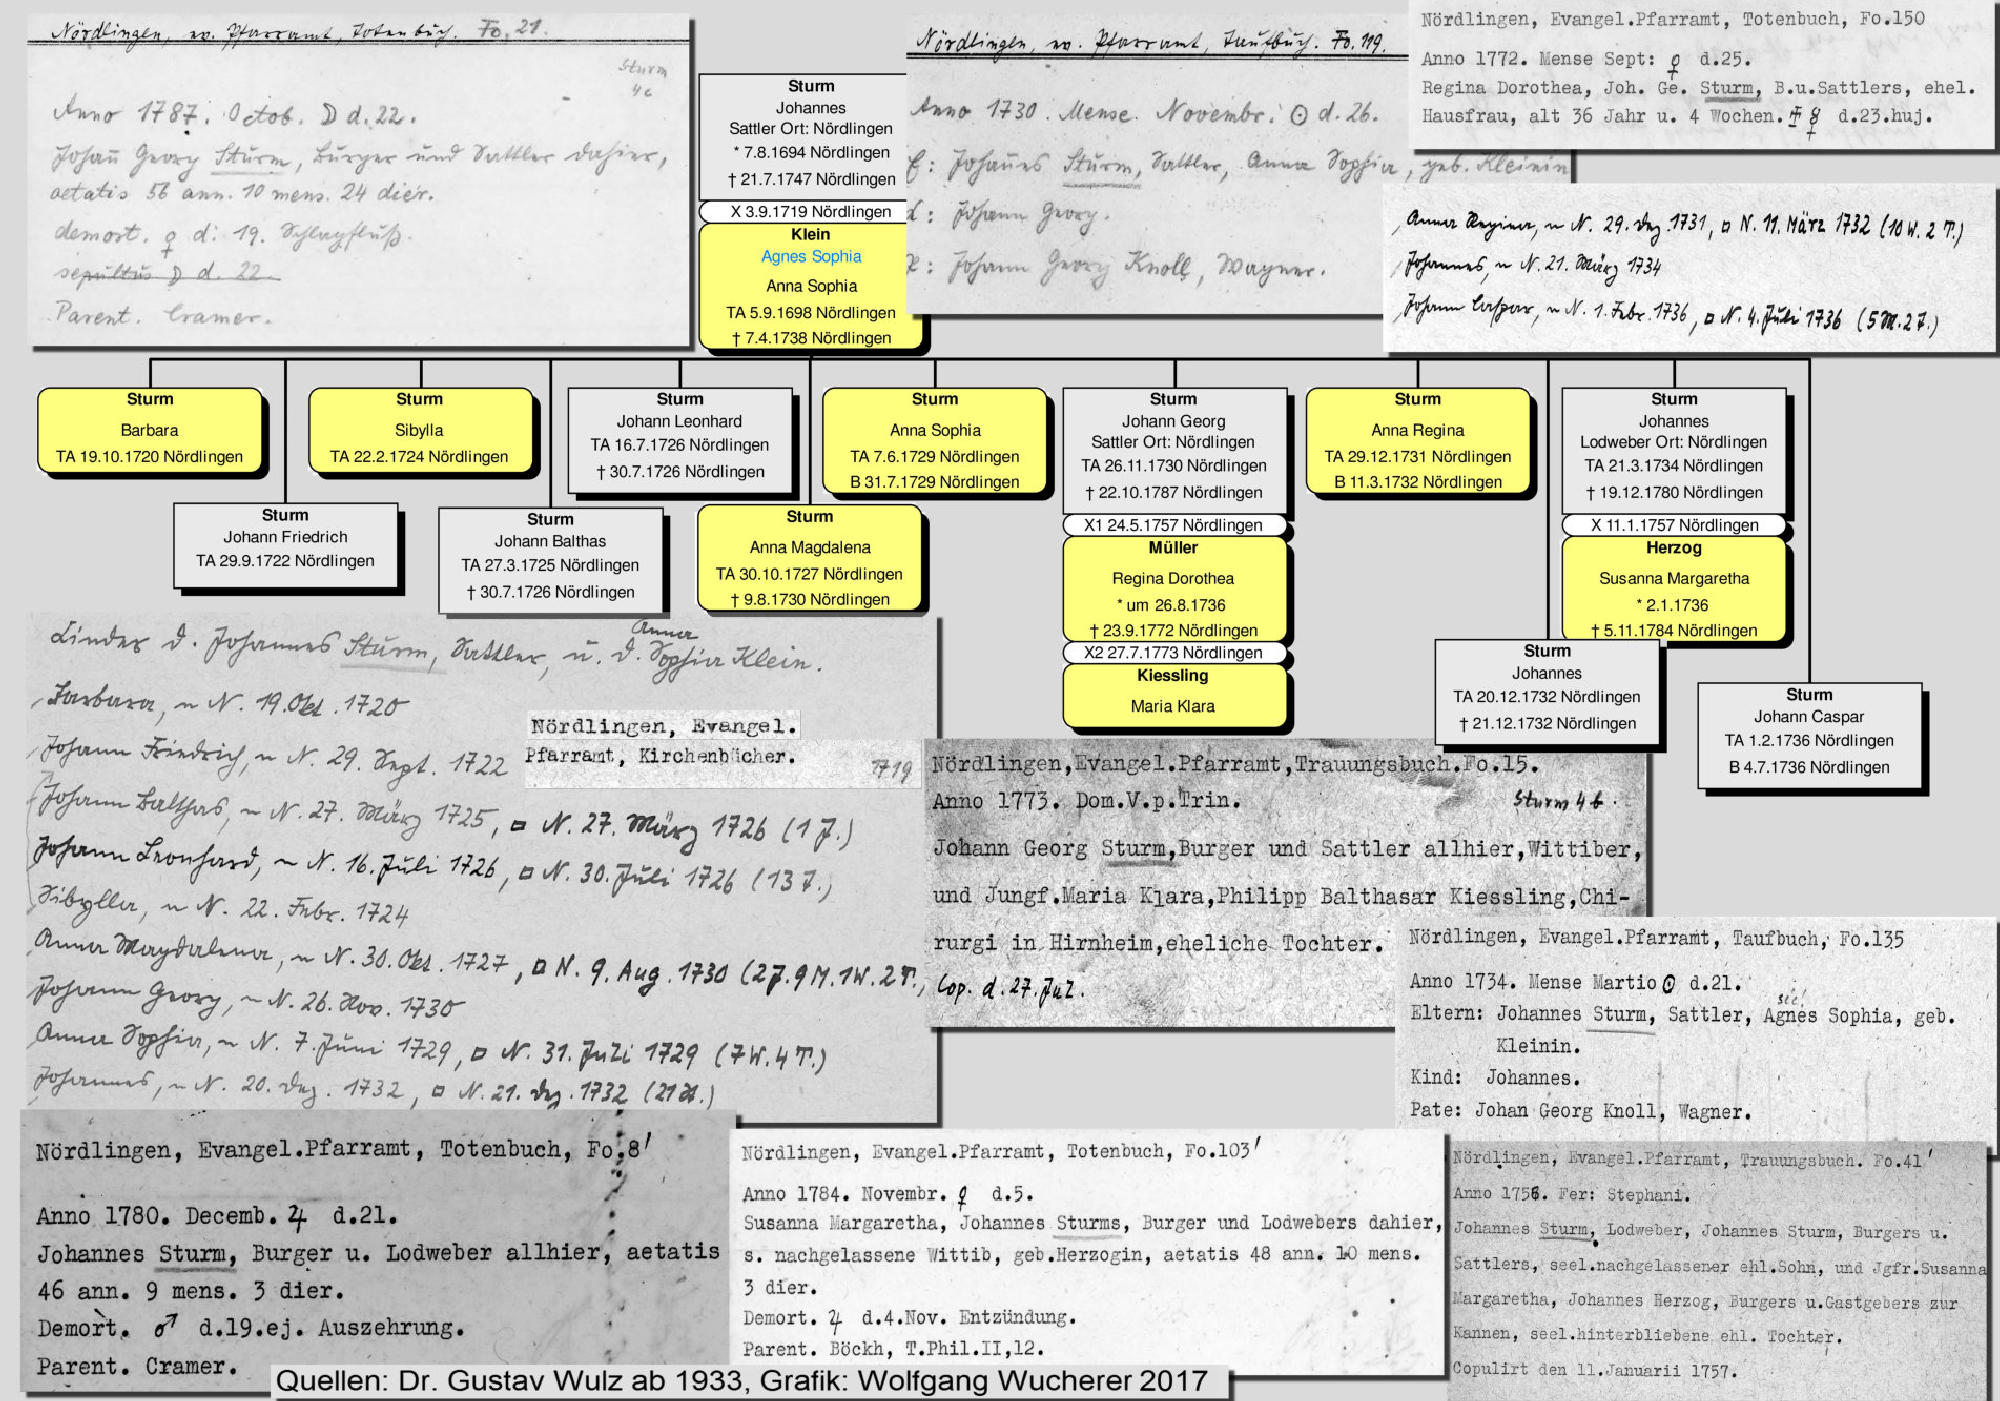 Nördlingen, ev. Pfarramt, Totenbuch. Fo. 21.
Sturm
4c
Anno 1787. Octob. D d. 22.
Johañ Georg Sturm, Burger und Sattler dahier,
aetatis 56 ann. 10 mens. 24 dier.
demort. ♀ d. 19. Schlagfluß.
sepultus D d. 22
Parent. Cramer.
Sturm
Johannes
Sattler Ort: Nördlingen
* 7.8.1694 Nördlingen
† 21.7.1747 Nördlingen
X 3.9.1719 Nördlingen
Klein
Agnes Sophia
Anna Sophia
TA 5.9.1698 Nördlingen
† 7.4.1738 Nördlingen
Nördlingen, ev. Pfarramt, Taufbuch. Fo. 119.
Anno 1730. Mense. Novembr. ⊙ d. 26.
E: Johañes Sturm, Sattler, Anna Sophia, geb. Kleinin
: Johann Georg.
: Johann Georg Knoll, Wagner.
Nördlingen, Evangel.Pfarramt, Totenbuch, Fo.150
Anno 1772. Mense Sept: ♀ d.25.
Regina Dorothea, Joh. Ge. Sturm, B.u.Sattlers, ehel.
Hausfrau, alt 36 Jahr u. 4 Wochen. ☿ d.23.huj.
Anna Regina, ~ N. 29. Dez. 1731, □ N. 11. März 1732 (10 W. 2 T.)
Johannes, ~ N. 21. März 1734
Johann Caspar, ~ N. 1. Febr. 1736, □ N. 4. Juli 1736 (5 M. 2 T.)
Sturm
Barbara
TA 19.10.1720 Nördlingen
Sturm
Johann Friedrich
TA 29.9.1722 Nördlingen
Sturm
Sibylla
TA 22.2.1724 Nördlingen
Sturm
Johann Balthas
TA 27.3.1725 Nördlingen
† 30.7.1726 Nördlingen
Sturm
Johann Leonhard
TA 16.7.1726 Nördlingen
† 30.7.1726 Nördlingen
Sturm
Anna Magdalena
TA 30.10.1727 Nördlingen
† 9.8.1730 Nördlingen
Sturm
Anna Sophia
TA 7.6.1729 Nördlingen
B 31.7.1729 Nördlingen
Sturm
Johann Georg
Sattler Ort: Nördlingen
TA 26.11.1730 Nördlingen
† 22.10.1787 Nördlingen
X1 24.5.1757 Nördlingen
Müller
Regina Dorothea
* um 26.8.1736
† 23.9.1772 Nördlingen
X2 27.7.1773 Nördlingen
Kiessling
Maria Klara
Sturm
Anna Regina
TA 29.12.1731 Nördlingen
B 11.3.1732 Nördlingen
Sturm
Johannes
TA 20.12.1732 Nördlingen
† 21.12.1732 Nördlingen
Sturm
Johannes
Lodweber Ort: Nördlingen
TA 21.3.1734 Nördlingen
† 19.12.1780 Nördlingen
X 11.1.1757 Nördlingen
Herzog
Susanna Margaretha
* 2.1.1736
† 5.11.1784 Nördlingen
Sturm
Johann Caspar
TA 1.2.1736 Nördlingen
B 4.7.1736 Nördlingen
Kinder d. Johannes Sturm, Sattler, u. d. Anna Sophia Klein.
Barbara, ~ N. 19. Okt. 1720
Johann Friedrich, ~ N. 29. Sept. 1722
Johann Balthas, ~ N. 27. März 1725, □ N. 27. März 1726 (1 J.)
Johann Leonhard, ~ N. 16. Juli 1726, □ N. 30. Juli 1726 (13 T.)
Sibylla, ~ N. 22. Febr. 1724
Anna Magdalena, ~ N. 30. Okt. 1727, □ N. 9. Aug. 1730 (2 J. 9 M. 1 W. 2 T.,
Johann Georg, ~ N. 26. Nov. 1730
Anna Sophia, ~ N. 7. Juni 1729, □ N. 31. Juli 1729 (7 W. 4 T.)
Johannes, ~ N. 20. Dez. 1732, □ N. 21. Dez. 1732 (21 St.)
Nördlingen, Evangel.
Pfarramt, Kirchenbücher.
1719
Nördlingen,Evangel.Pfarramt,Trauungsbuch.Fo.15.
Anno 1773. Dom.V.p.Trin.
Sturm 4 b.
Johann Georg Sturm,Burger und Sattler allhier,Wittiber,
und Jungf.Maria Klara,Philipp Balthasar Kiessling,Chi-
rurgi in Hirnheim,eheliche Tochter.
Cop. d. 27. Jul.
Nördlingen, Evangel.Pfarramt, Taufbuch, Fo.135
Anno 1734. Mense Martio ⊙ d.21.
Eltern: Johannes Sturm, Sattler, Agnes sic! Sophia, geb.
Kleinin.
Kind: Johannes.
Pate: Johan Georg Knoll, Wagner.
Nördlingen, Evangel.Pfarramt, Totenbuch, Fo.8'
Anno 1780. Decemb. ♃ d.21.
Johannes Sturm, Burger u. Lodweber allhier, aetatis
46 ann. 9 mens. 3 dier.
Demort. ♂ d.19.ej. Auszehrung.
Parent. Cramer.
Nördlingen, Evangel.Pfarramt, Totenbuch, Fo.103'
Anno 1784. Novembr. ♀ d.5.
Susanna Margaretha, Johannes Sturms, Burger und Lodwebers dahier,
s. nachgelassene Wittib, geb.Herzogin, aetatis 48 ann. 10 mens.
3 dier.
Demort. ♃ d.4.Nov. Entzündung.
Parent. Böckh, T.Phil.II,12.
Nördlingen, Evangel.Pfarramt, Trauungsbuch. Fo.41'
Anno 1756. Fer: Stephani.
Johannes Sturm, Lodweber, Johannes Sturm, Burgers u.
Sattlers, seel.nachgelassener ehl.Sohn, und Jgfr.Susanna
Margaretha, Johannes Herzog, Burgers u.Gastgebers zur
Kannen, seel.hinterbliebene ehl. Tochter.
Copulirt den 11.Januarii 1757.
Quellen: Dr. Gustav Wulz ab 1933, Grafik: Wolfgang Wucherer 2017